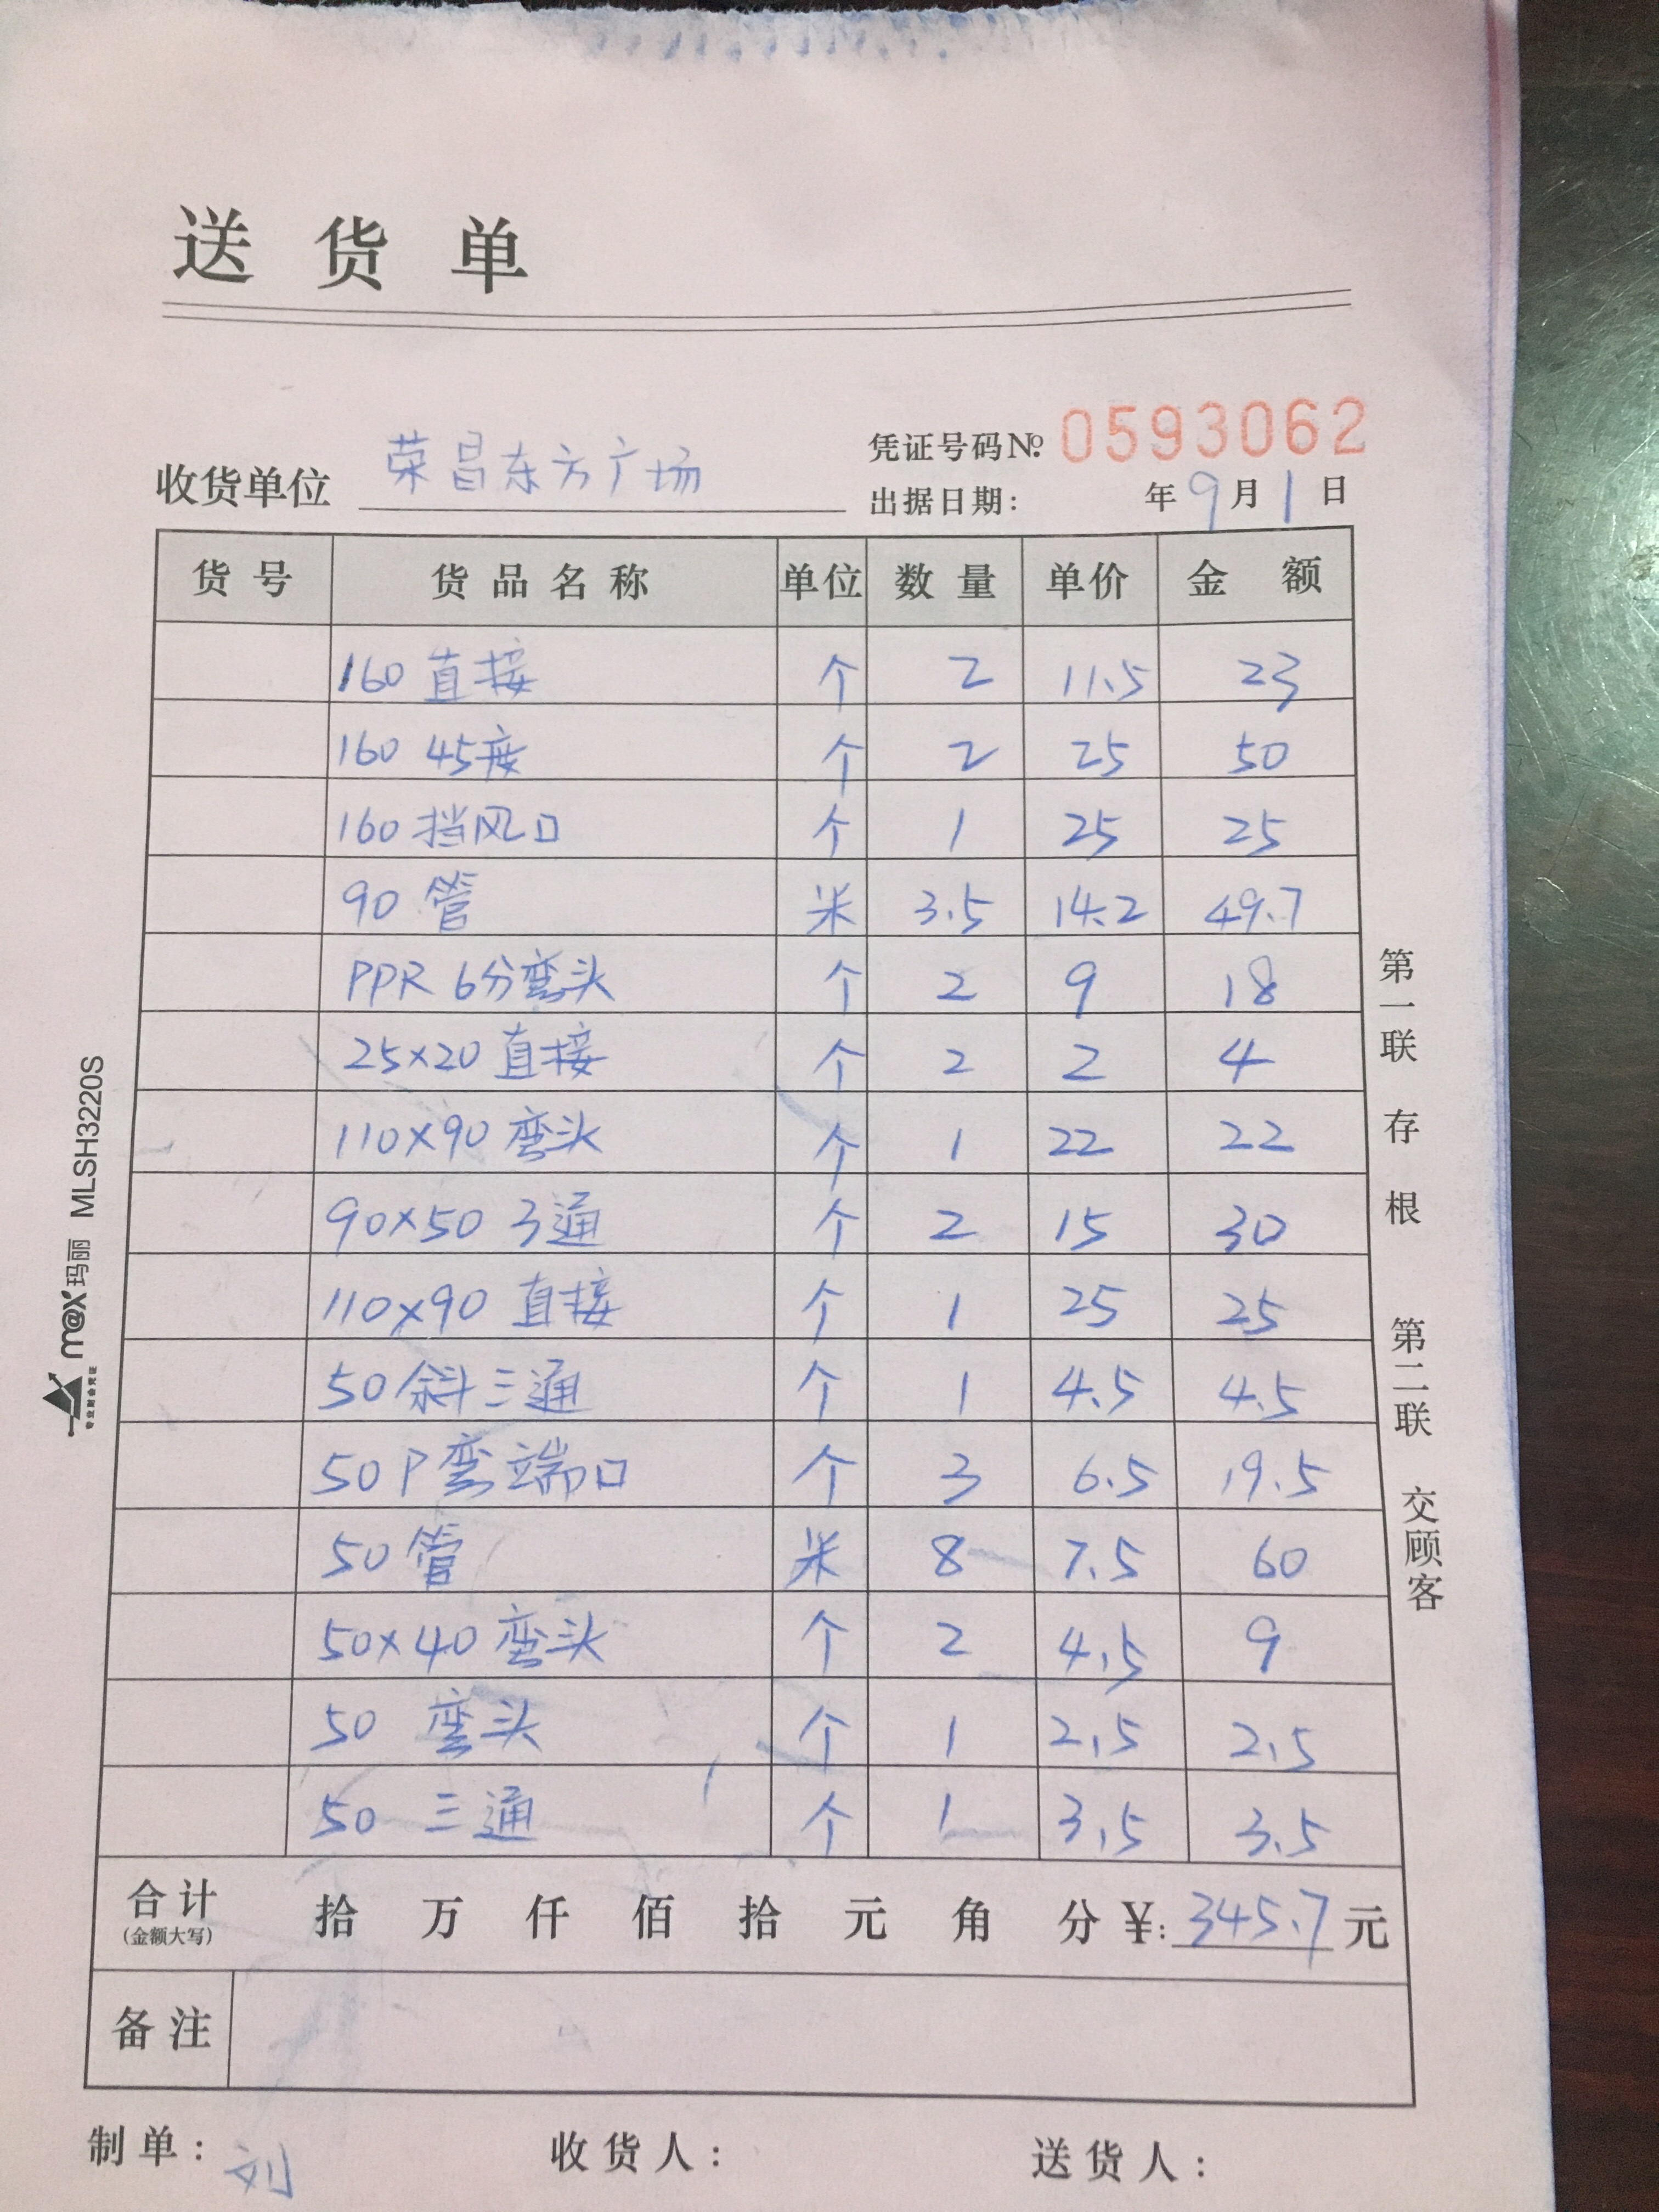 送货单
凭证号码№: 0593062
收货单位 荣昌东方广场
出据日期: 年9月1日
货号 货品名称 单位 数量 单价 金额
160 直接 个 2 11.5 23
160 45度 个 2 25 50
160 挡风口 个 1 25 25
90 管 米 3.5 14.2 49.7
PPR 6分弯头 个 2 9 18
25×20 直接 个 2 2 4
110×90 弯头 个 1 22 22
90×50 3通 个 2 15 30
110×90 直接 个 1 25 25
50 斜三通 个 1 4.5 4.5
50 P弯端口 个 3 6.5 19.5
50 管 米 8 7.5 60
50×40 弯头 个 2 4.5 9
50 弯头 个 1 2.5 2.5
50 三通 个 1 3.5 3.5
合计 拾 万 仟 佰 拾 元 角 分 ¥: 345.7 元
(金额大写)
备注
制单: 刘 收货人: 送货人:
第一联 存根 第二联 交顾客
max 玛丽 MLSH3220S
专业财会凭证